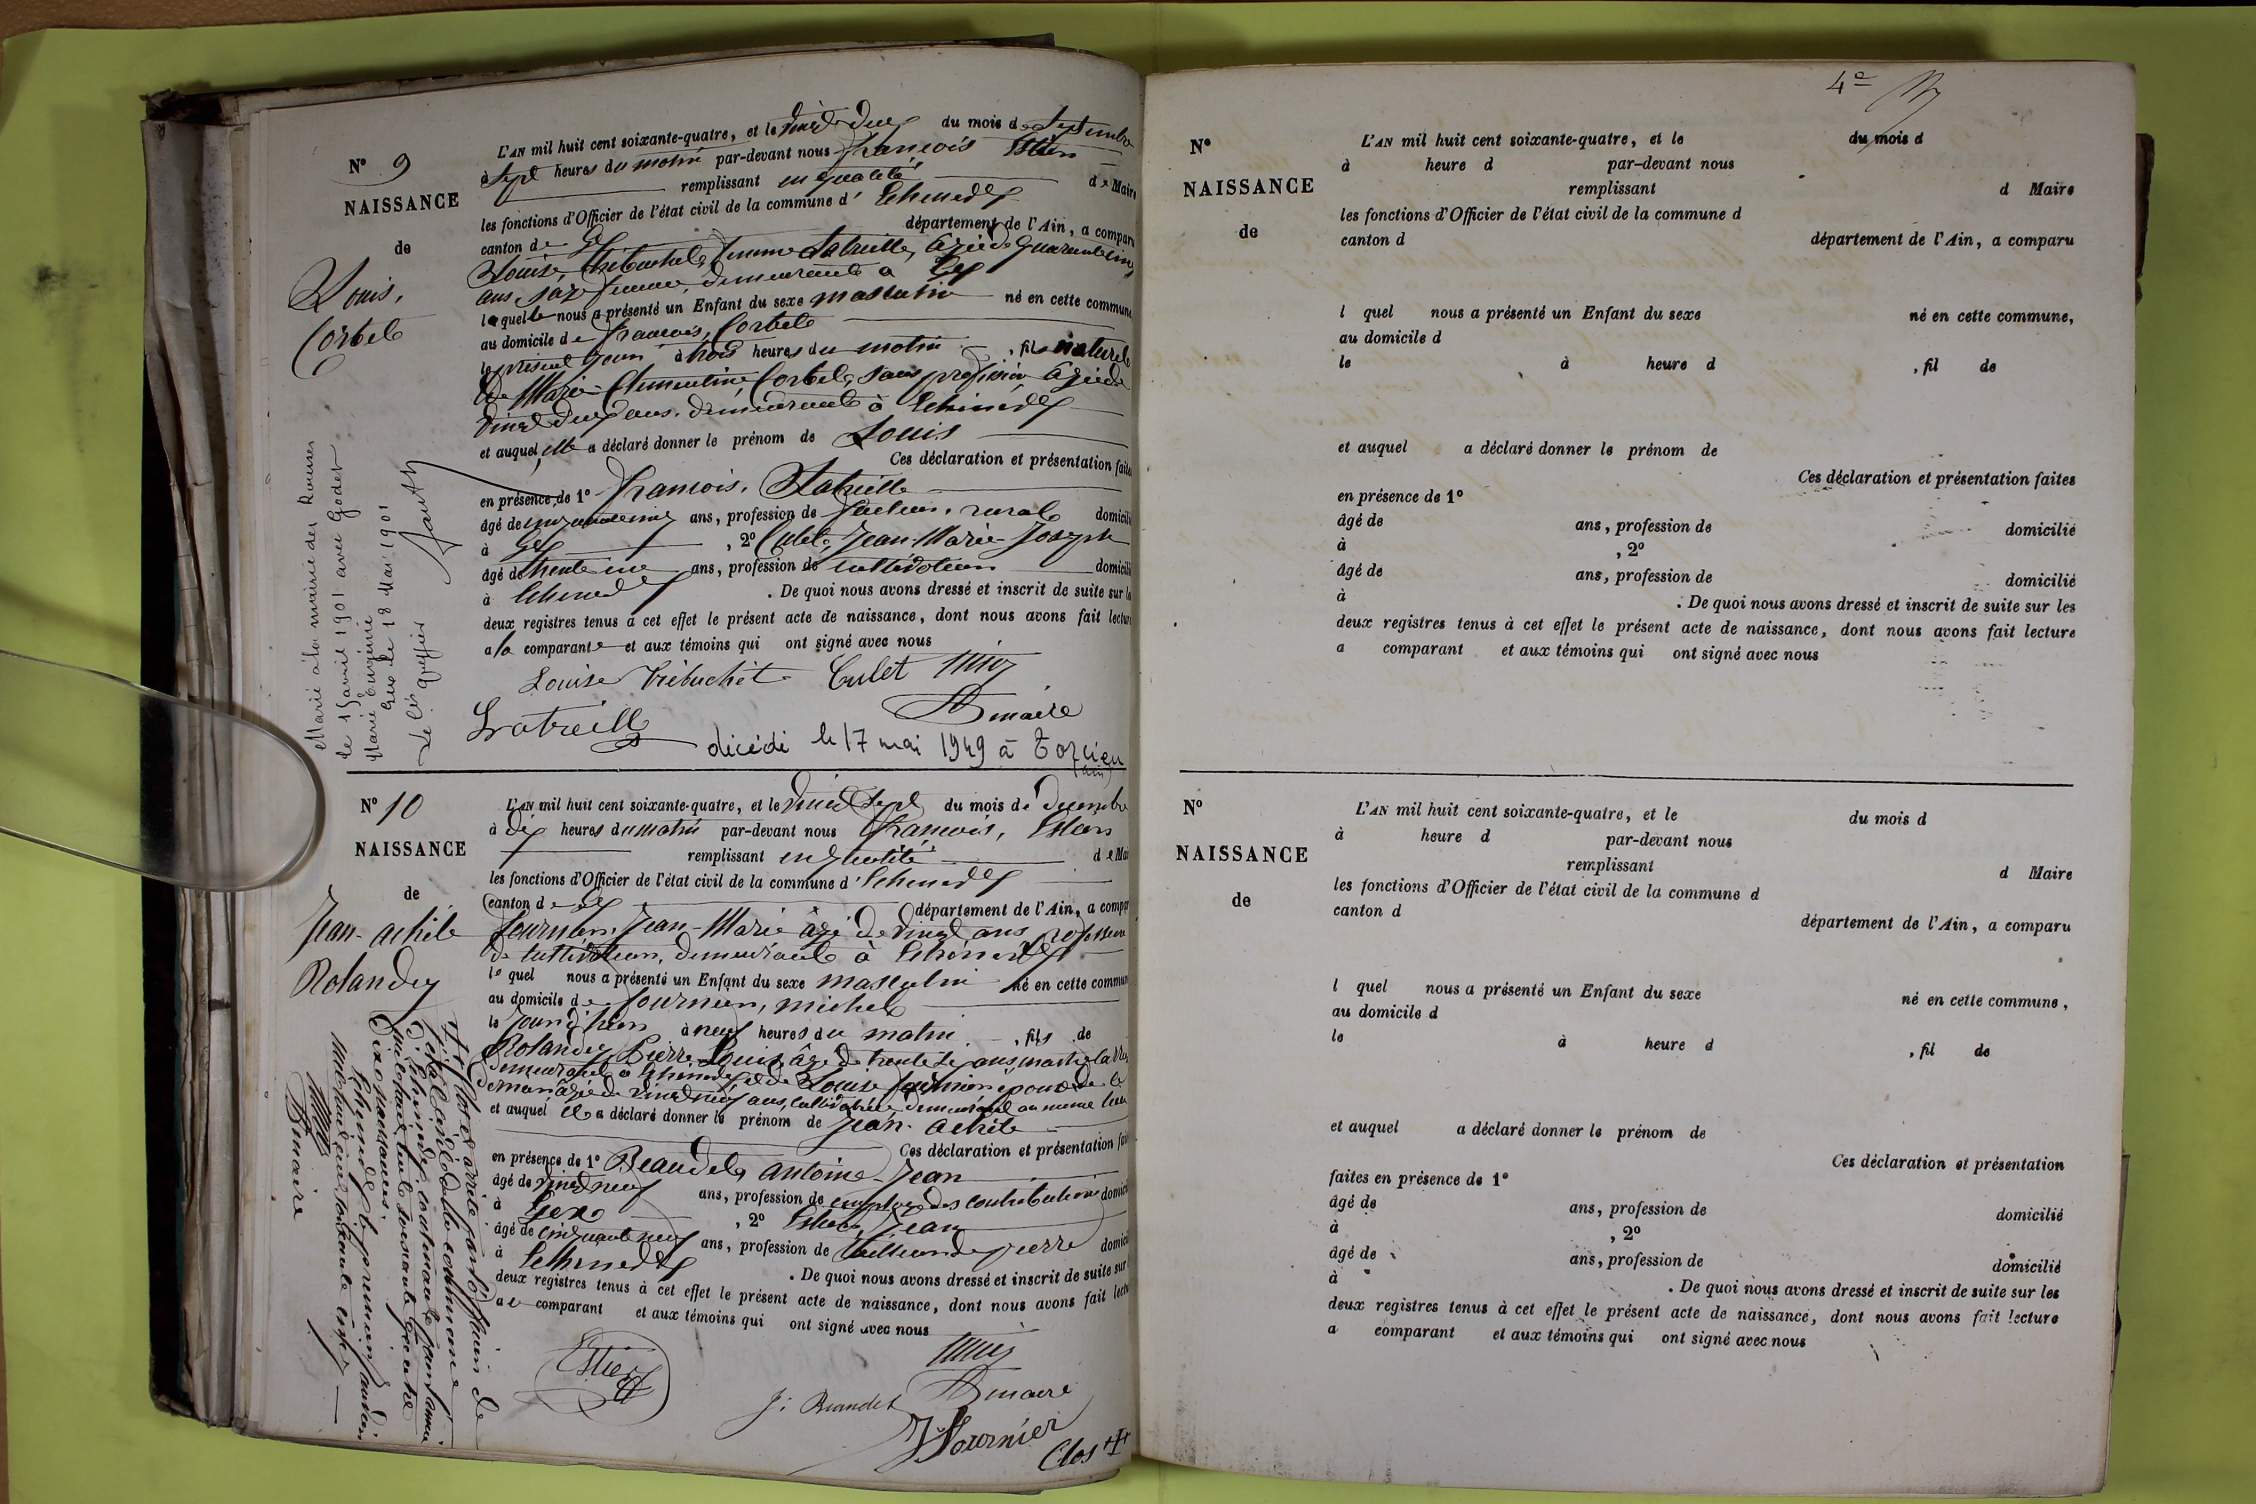 N° 9
NAISSANCE
de
Louis,
Corbet
L'AN mil huit cent soixante-quatre, et le vingt deux du mois de Septembre
à sept heures du matin par-devant nous François Estier
remplissant en qualité de Maire
les fonctions d'Officier de l'état civil de la commune d' Echenevex
canton de Gex département de l'Ain, a comparu
Louise Trébuchet, femme Latreille, âgée de quarante cinq
ans, sage femme, demeurante à Gex
laquelle nous a présenté un Enfant du sexe masculin né en cette commune
au domicile de François, Corbet
le présent jour à trois heures du matin, fils naturel
de Marie-Clémentine Corbet, sans profession âgée de
vingt deux ans, demeurante à Echenevex
et auquel elle a déclaré donner le prénom de Louis
Ces déclaration et présentation faites
en présence de 1° François, Latreille
âgé de ans, profession de facteur, rural domicilié
à Gex, 2° Culet, Jean-Marie-Joseph
âgé de trente ans, profession de cultivateur domicilié
à Echenevex. De quoi nous avons dressé et inscrit de suite sur les
deux registres tenus à cet effet le présent acte de naissance, dont nous avons fait lecture
a la comparante et aux témoins qui ont signé avec nous
Louise Trébuchet Culet
Latreille
maire
décédé le 17 mai 1949 à Torcieu
(Ain)
Marié à la mairie des Rousses
le 15 avril 1901 avec Godet
Marie Eugénie
Gex le 18 Mai 1901
Le Cis greffier
N° 10
NAISSANCE
de
Jean-achile
Rolandez
L'AN mil huit cent soixante-quatre, et le vingt sept du mois de décembre
à dix heures du matin par-devant nous François, Estier
remplissant en qualité de Maire
les fonctions d'Officier de l'état civil de la commune d' Echenevex
canton de Gex département de l'Ain, a comparu
Fournier, Jean-Marie âgé de vingt ans profession
de cultivateur, demeurant à Echenevex
lequel nous a présenté un Enfant du sexe masculin né en cette commune
au domicile de Fournier, michel
le jour d'hier à neuf heures du matin, fils de
Rolandez, Pierre Louis âgé de trente ans
demeurant à Echenevex et de Louise Fournier épouse de
âgée de vingt neuf ans, cultivatrice demeurant au même lieu
et auquel il a déclaré donner le prénom de Jean-achile
Ces déclaration et présentation faites
en présence de 1° Beaudet, antoine-Jean
âgé de vingt neuf ans, profession de employé des contributions domicilié
à Gex, 2° Estier, Jean
âgé de cinquante neuf ans, profession de tailleur de pierre domicilié
à Echenevex. De quoi nous avons dressé et inscrit de suite sur
deux registres tenus à cet effet le présent acte de naissance, dont nous avons fait lecture
a le comparant et aux témoins qui ont signé avec nous
Estier
J. Beaudet
maire
J Fournier
Clos ++
++ Clos et arrêté par l'officier de
l'état civil de la commune
d'Echenevex contenant le
mil huit cent soixante quatre
dix naissances.
Echenevex le premier janvier
mil huit cent soixante cinq
maire
4e
N°
NAISSANCE
de
L'AN mil huit cent soixante-quatre, et le du mois d
à heure d par-devant nous
remplissant d Maire
les fonctions d'Officier de l'état civil de la commune d
canton d département de l'Ain, a comparu
l quel nous a présenté un Enfant du sexe né en cette commune,
au domicile d
le à heure d , fil de
et auquel a déclaré donner le prénom de
Ces déclaration et présentation faites
en présence de 1°
âgé de ans, profession de domicilié
à , 2°
âgé de ans, profession de domicilié
à . De quoi nous avons dressé et inscrit de suite sur les
deux registres tenus à cet effet le présent acte de naissance, dont nous avons fait lecture
a comparant et aux témoins qui ont signé avec nous
N°
NAISSANCE
de
L'AN mil huit cent soixante-quatre, et le du mois d
à heure d par-devant nous
remplissant d Maire
les fonctions d'Officier de l'état civil de la commune d
canton d
département de l'Ain, a comparu
l quel nous a présenté un Enfant du sexe né en cette commune,
au domicile d
le à heure d , fil de
et auquel a déclaré donner le prénom de
Ces déclaration et présentation
faites en présence de 1°
âgé de ans, profession de domicilié
à , 2°
âgé de ans, profession de domicilié
à . De quoi nous avons dressé et inscrit de suite sur les
deux registres tenus à cet effet le présent acte de naissance, dont nous avons fait lecture
a comparant et aux témoins qui ont signé avec nous